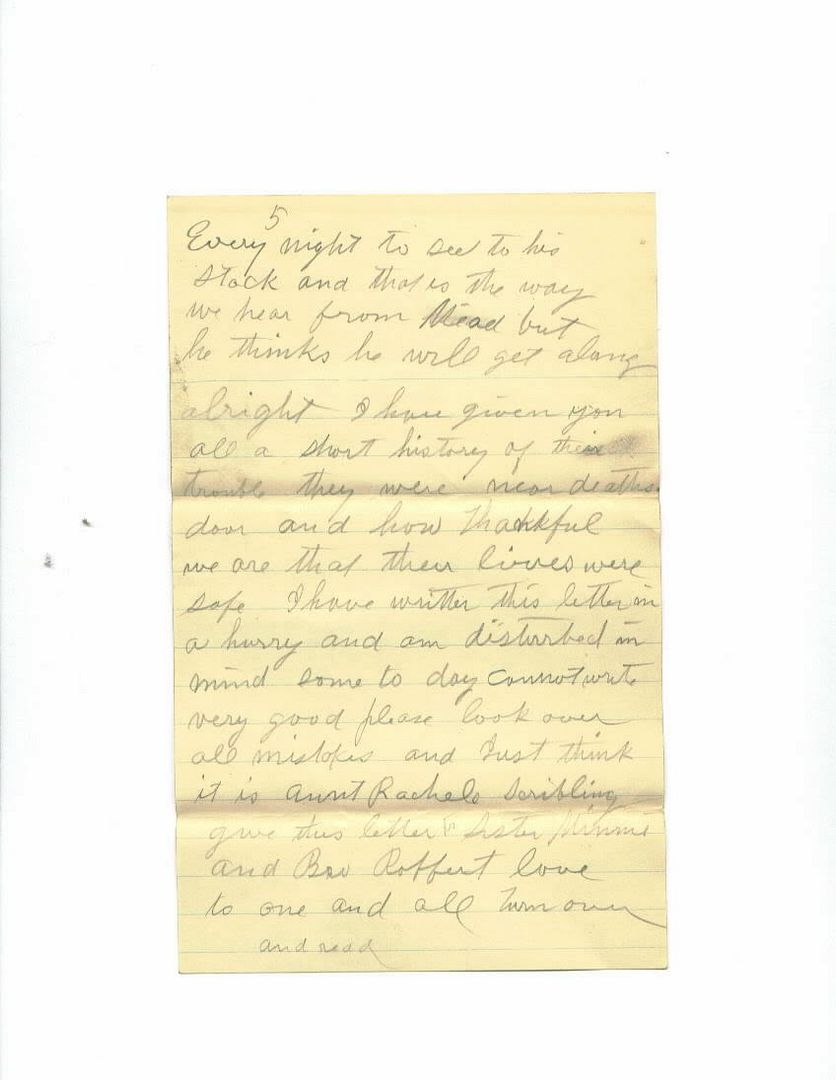 5
Every night to see to his
stock and that is the way
we hear from Mead but
he thinks he will get along
alright I have given you
all a short history of their
trouble they were near deaths
door and how thankful
we are that their lives were
safe I have writter this letter in
a hurry and am disturbed in
mind some to day cannot write
very good please look over
all mistakes and Just think
it is aunt Rachels scribling
give this letter to Sister Minnie
and Bro Robbert love
to one and all turn over
and read